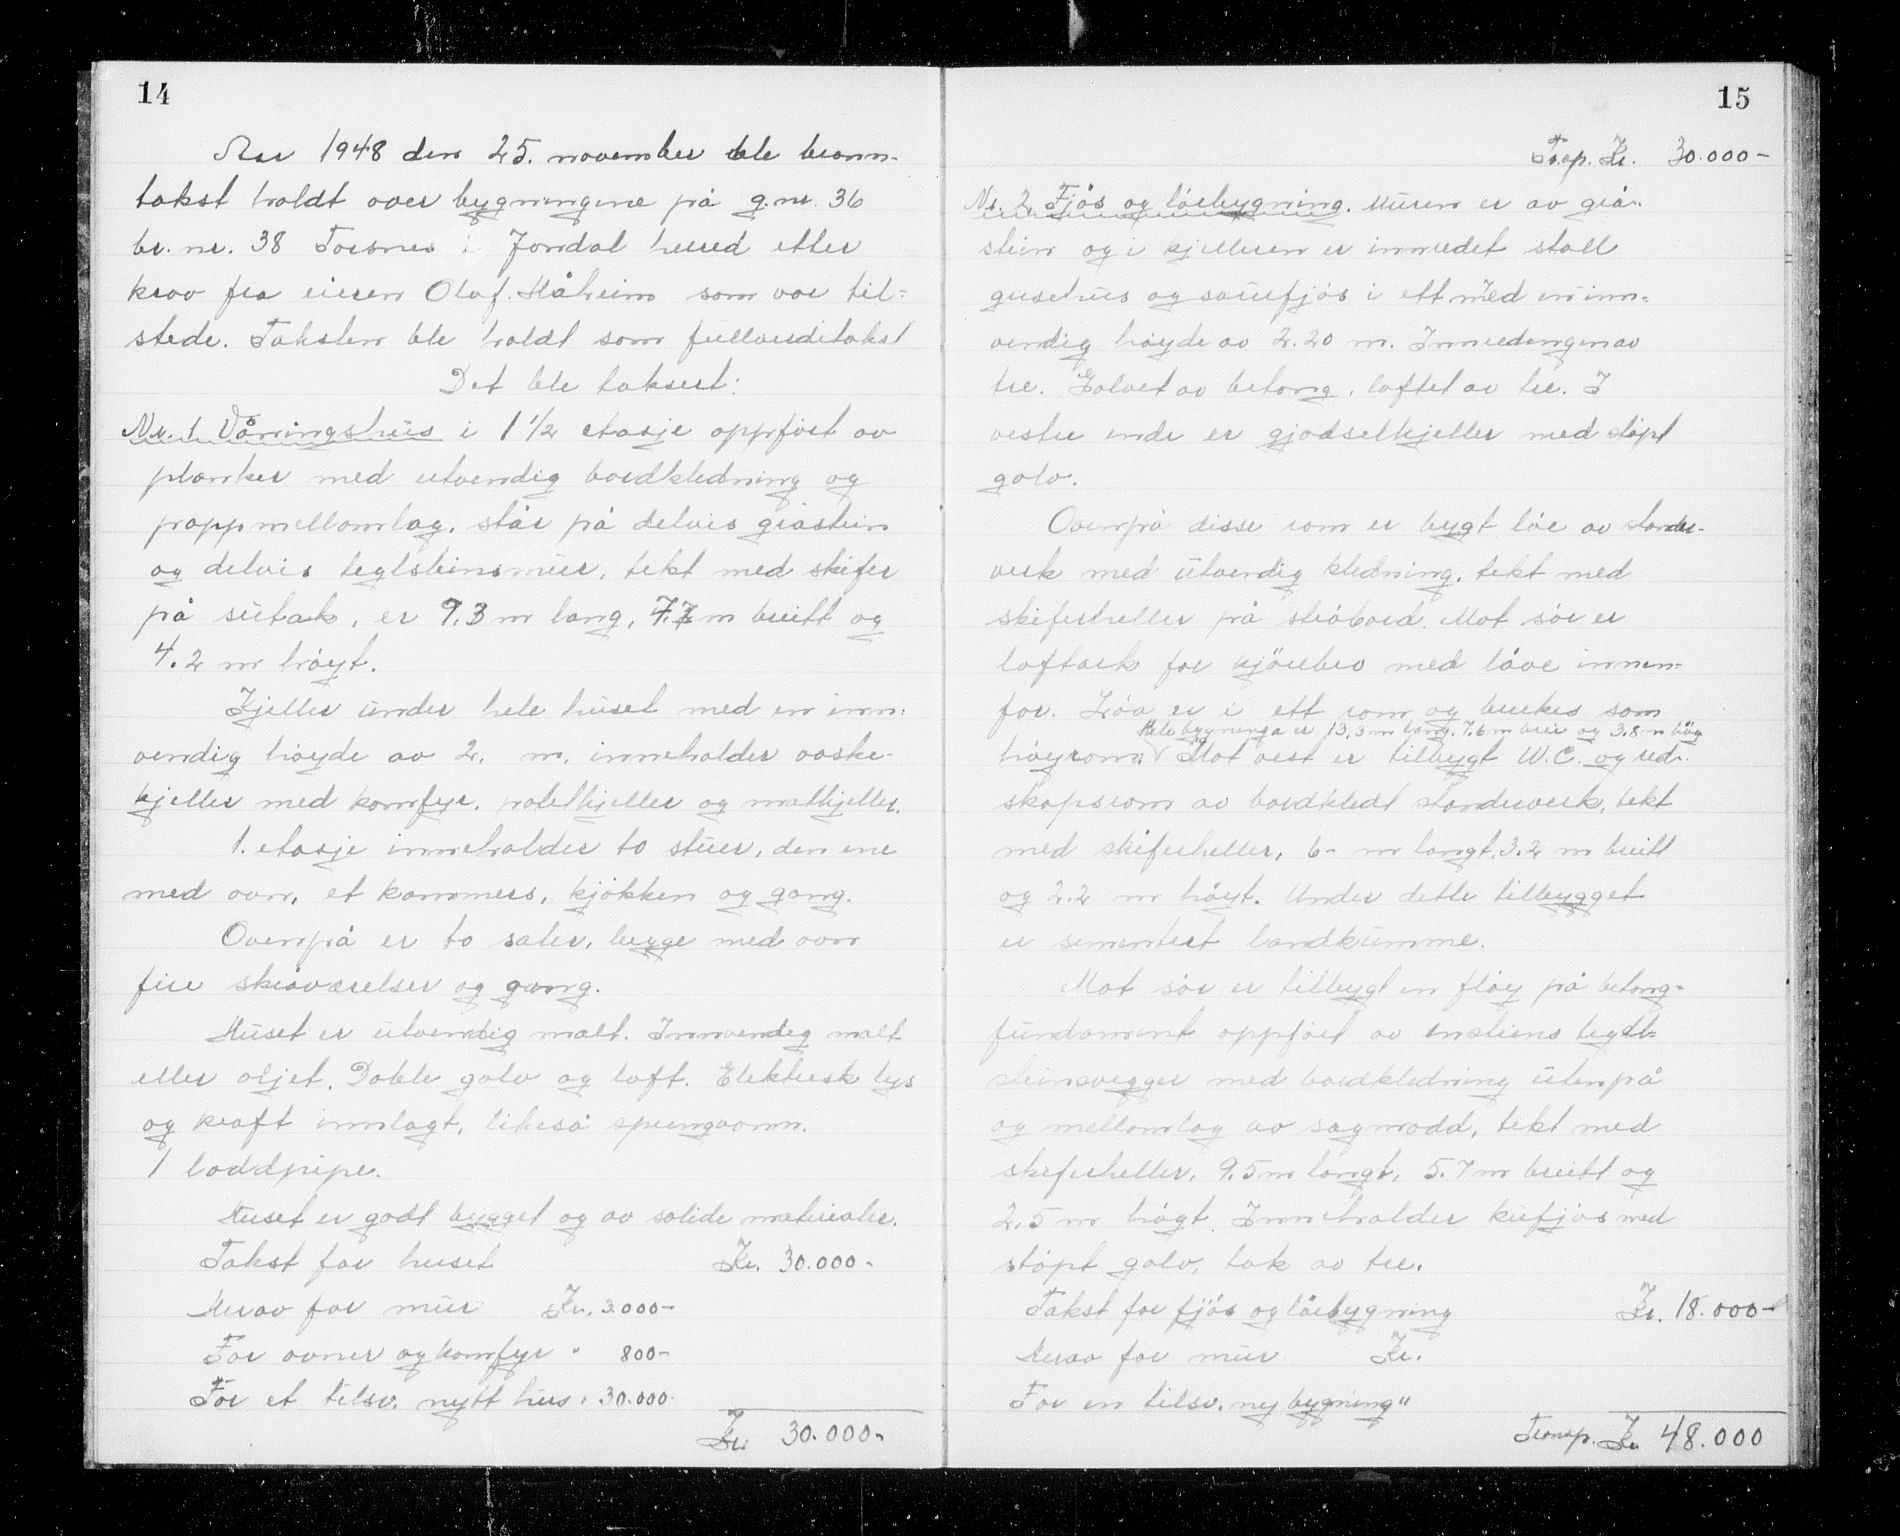 14
Aar 1948 den 25. november ble brann-
takst holdt over bygningene på g.nr. 36
br. nr. 38 Torsnes i Jondal herred etter
krav fra eieren Olaf Måheim som var til-
stede. Taksten ble holdt som fullverditakst
Det ble taksert:
Nr. 1 Våningshus i 1 1/2 etasje oppført av
planker med utvendig bordkledning og
pappmellomlag, står på delvis gråstein
og delvis teglsteinsmur, tekt med skifer
på sutak, er 9.3 m lang, 7.7 m breitt og
4.2 m høyt.
Kjeller under hele huset med en inn-
vendig høyde av 2. m, inneholder vaske-
kjeller med komfyr, potetkjeller og matkjeller.
1. etasje inneholder to stuer, den ene
med ovn, et kammers, kjøkken og gang.
Ovenpå er to saler, begge med ovn
fire skråværelser og gang.
Huset er utvendig malt. Innvendig malt
eller oljet. Doble golv og loft. Elektrisk lys
og kraft innlagt, likeså springvann.
1 loddpipe.
Huset er godt bygget og av solide materialer.
Takst for huset Kr. 30.000-
Herav for mur Kr. 3.000-
For ovner og komfyr " 800-
For et tilsv. nytt hus " 30.000
Kr. 30.000-
15
Trsp. Kr. 30.000-
Nr. 2 Fjøs og løebygning. Muren er av grå-
stein og i kjelleren er innredet stall
grisehus og sauefjøs i ett med en inn-
vendig høyde av 2.20 m. Innredingen av
tre. Golvet av betong, loftet av tre. I
vestre ende er gjødselkjeller med støpt
golv.
Ovenpå disse rom er bygt løe av stender-
verk med utvendig kledning, tekt med
skiferheller på strøbord. Mot sør er
loftark for kjørebro med låve innen-
for. Løa er i ett rom og brukes som
Hele bygninga er 13,3 m lang, 7.6 m brei og 3.8 m høg
høyrom. V Mot vest er tilbygt W.C. og red-
skapsrom av bordkledt stenderverk, tekt
med skiferheller, 6- m langt, 3.2 m breitt
og 2.2 m høyt. Under dette tilbygget
er sementert landkumme.
Mot sør er tilbygt en fløy på betong-
fundament oppført av ensteins tegl-
steinsvegger med bordkledning utenpå
og mellomlag av sagmodd, tekt med
skiferheller, 9.5 m langt, 5.7 m breitt og
2,5 m høgt. Inneholder kufjøs med
støpt golv, tak av tre.
Takst for fjøs og løebygning Kr. 18.000-
Herav for mur Kr.
For en tilsv. ny bygning "
Transp. Kr. 48.000